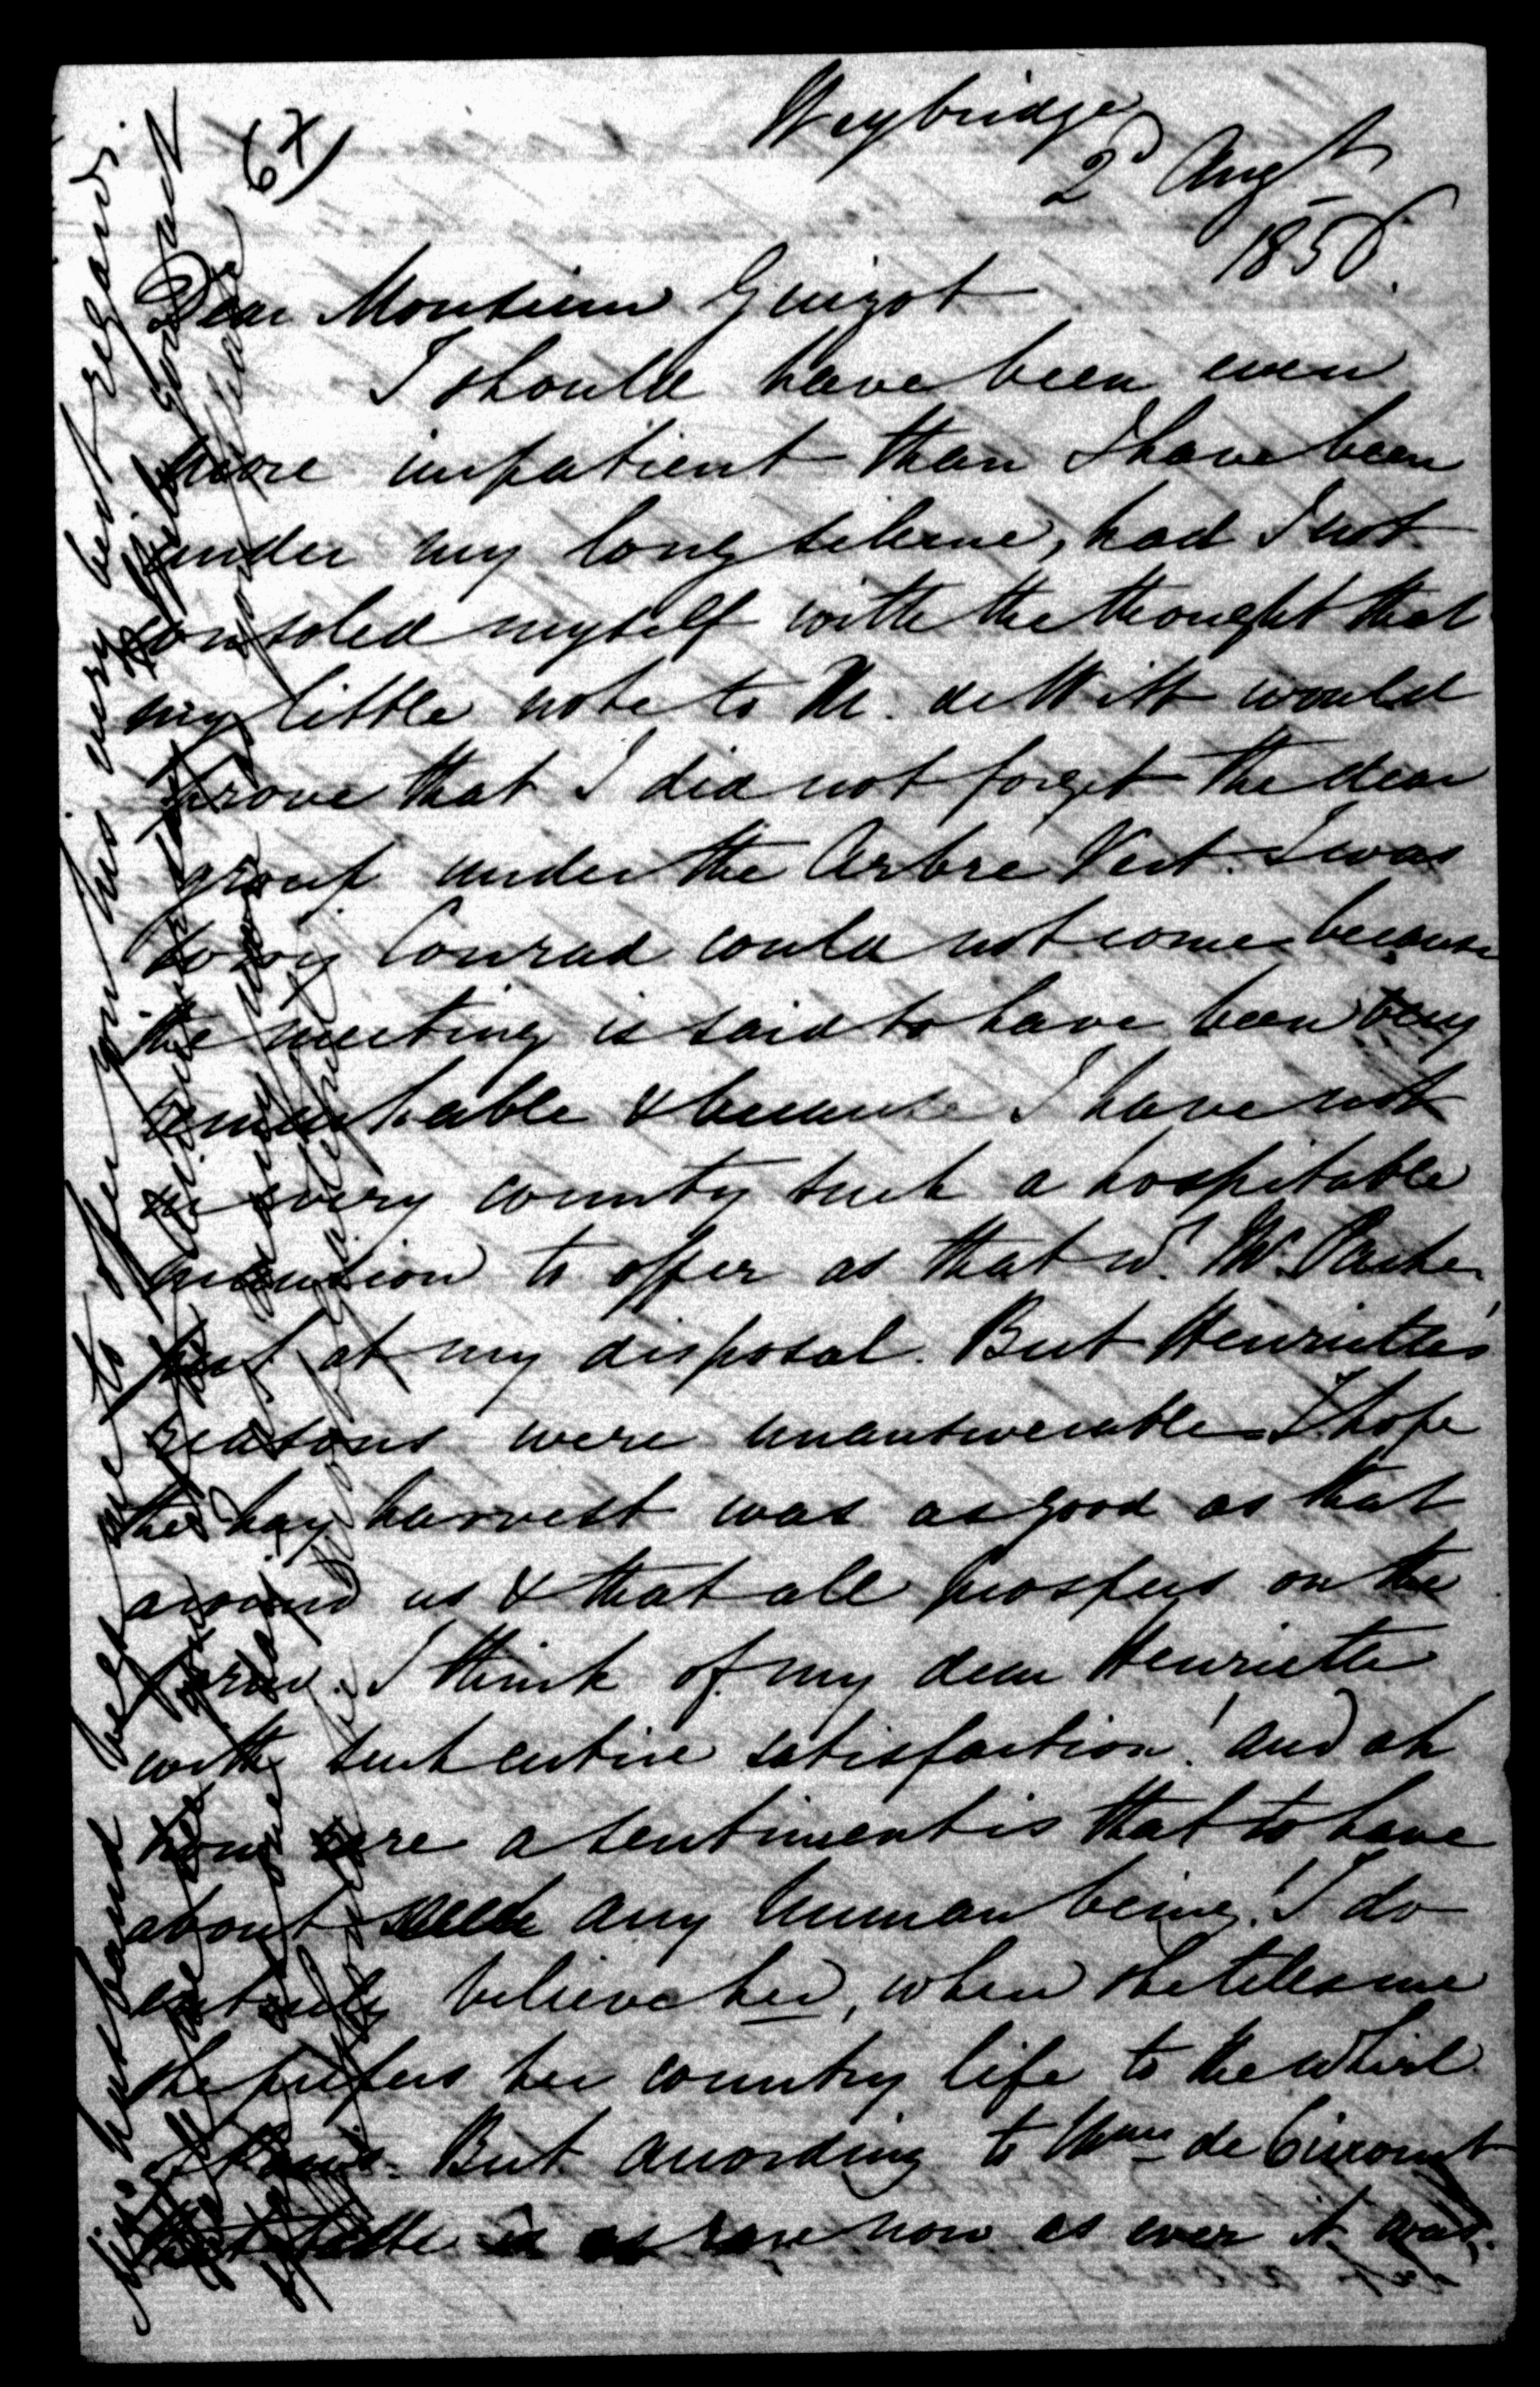 (X)
Weybridge
2d Augt
1856.
Dear Monsieur Guizot
I should have been even
more impatient than I have been
under my long silence, had I not
consoled myself with the thought that
my little note to M. de Witt would
prove that I did not forget the dear
group under the Arbre Vert. I was
sorry Conrad could not come because
the meeting is said to have been very
remarkable & because I have not
in every county such a hospitable
mansion to offer as that wd. Mr. Parker
put at my disposal. But Henriette's
reasons were unanswerable = I hope
the hay harvest was as good as that
around us & that all prospers on the
farm. I think of my dear Henriette
with such entire satisfaction! and oh
how rare a sentiment is that to have
about any human being! I do
entirely believe her, when she tells me
she prefers her country life to the whirl
of Paris. But according to Mme de Circourt
that taste is as rare now as ever it was.
My husband begs me to offer you his very best regards.